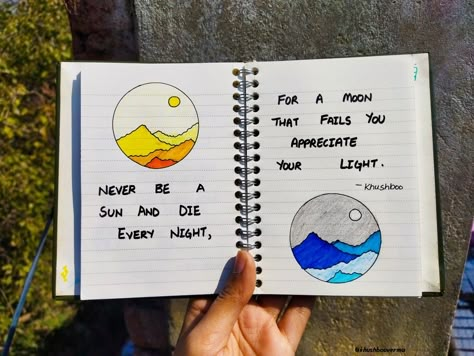 NEVER BE A
SUN AND DIE
EVERY NIGHT,
FOR A MOON
THAT FAILS YOU
APPRECIATE
YOUR LIGHT.
- Khushboo